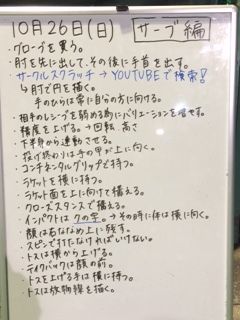 10月26日(日) サーブ編
・グローブを買う。
・肘を先に出して、その後に手首を出す。
サークルスクラッチ→YOUTUBEで検索!
↳肘で円を描く。
手のひらは常に自分の方に向ける。
・相手のレシーブを弱める為にバリエーションを増やす。
・精度を上げる。→回転、高さ
・下半身から連動させる。
・投げ終わりは手の甲が上に向く。
・コンチネンタルグリップで持つ。
・ラケットを横に持つ。
・ラケット面を上に向けて構える。
・クローズスタンスで構える。
・インパクトはくの字。→その時に体は横に向く。
・顔は右ななめ上に残す。
・スピンで打たなければいけない。
・トスは横から上げる。
・テイクバックは顔の前。
・トスを上げる手は横に持つ。
・トスは放物線を描く。